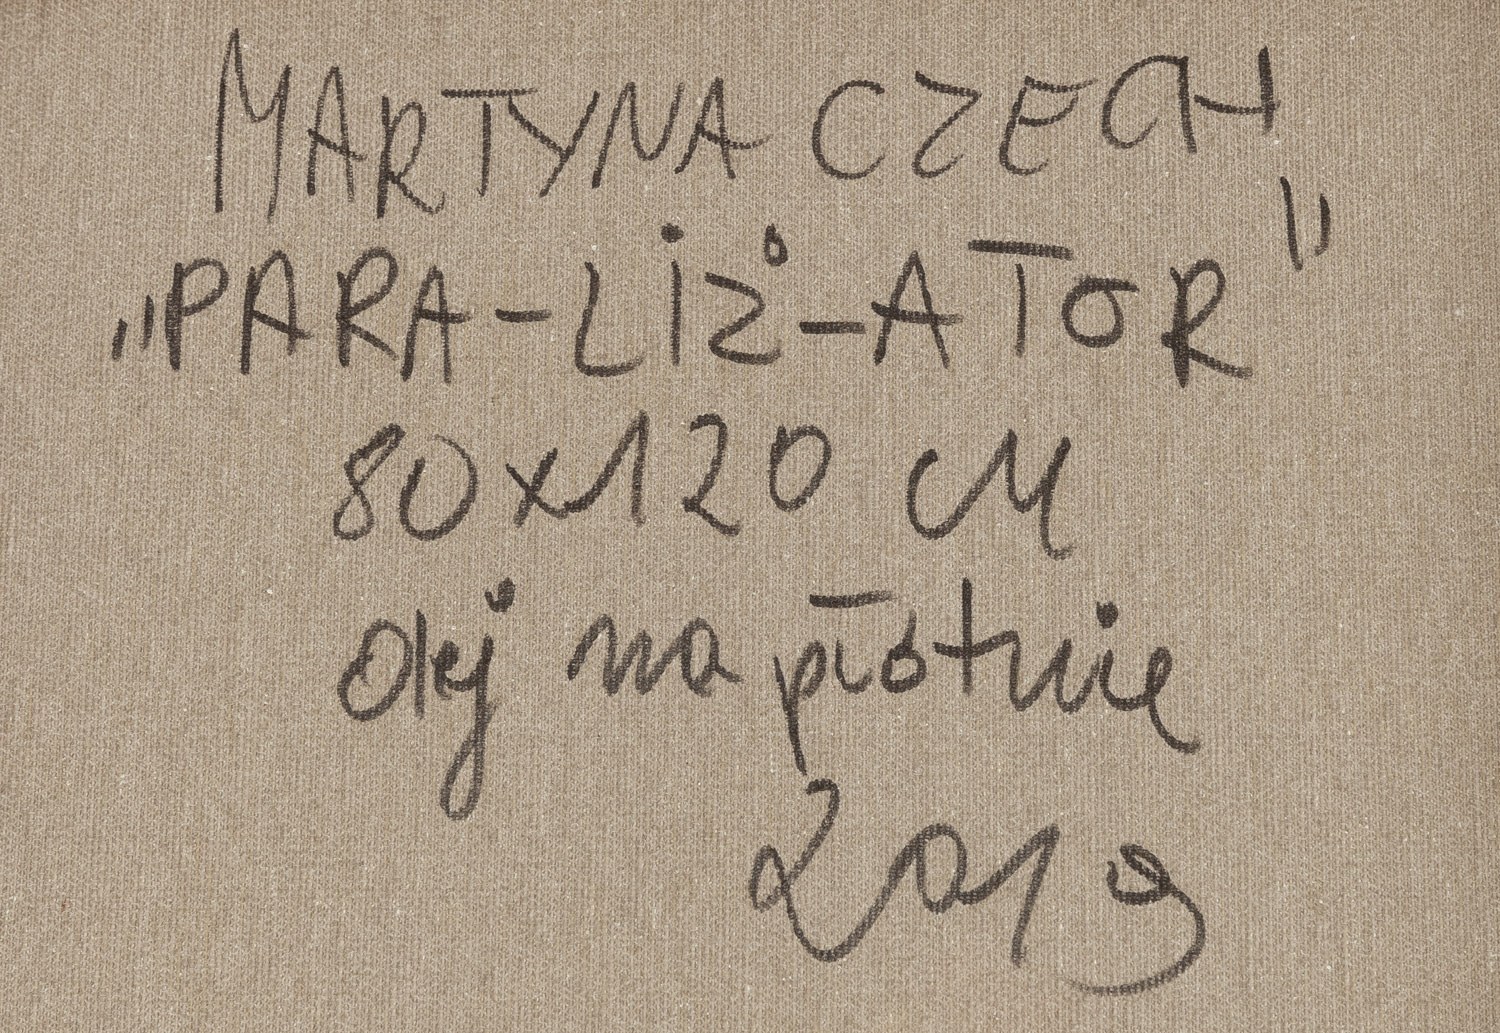 MARTYNA CZECH
„PARA-LIŻ-ATOR"
80x120 cm
olej na płótnie
2019